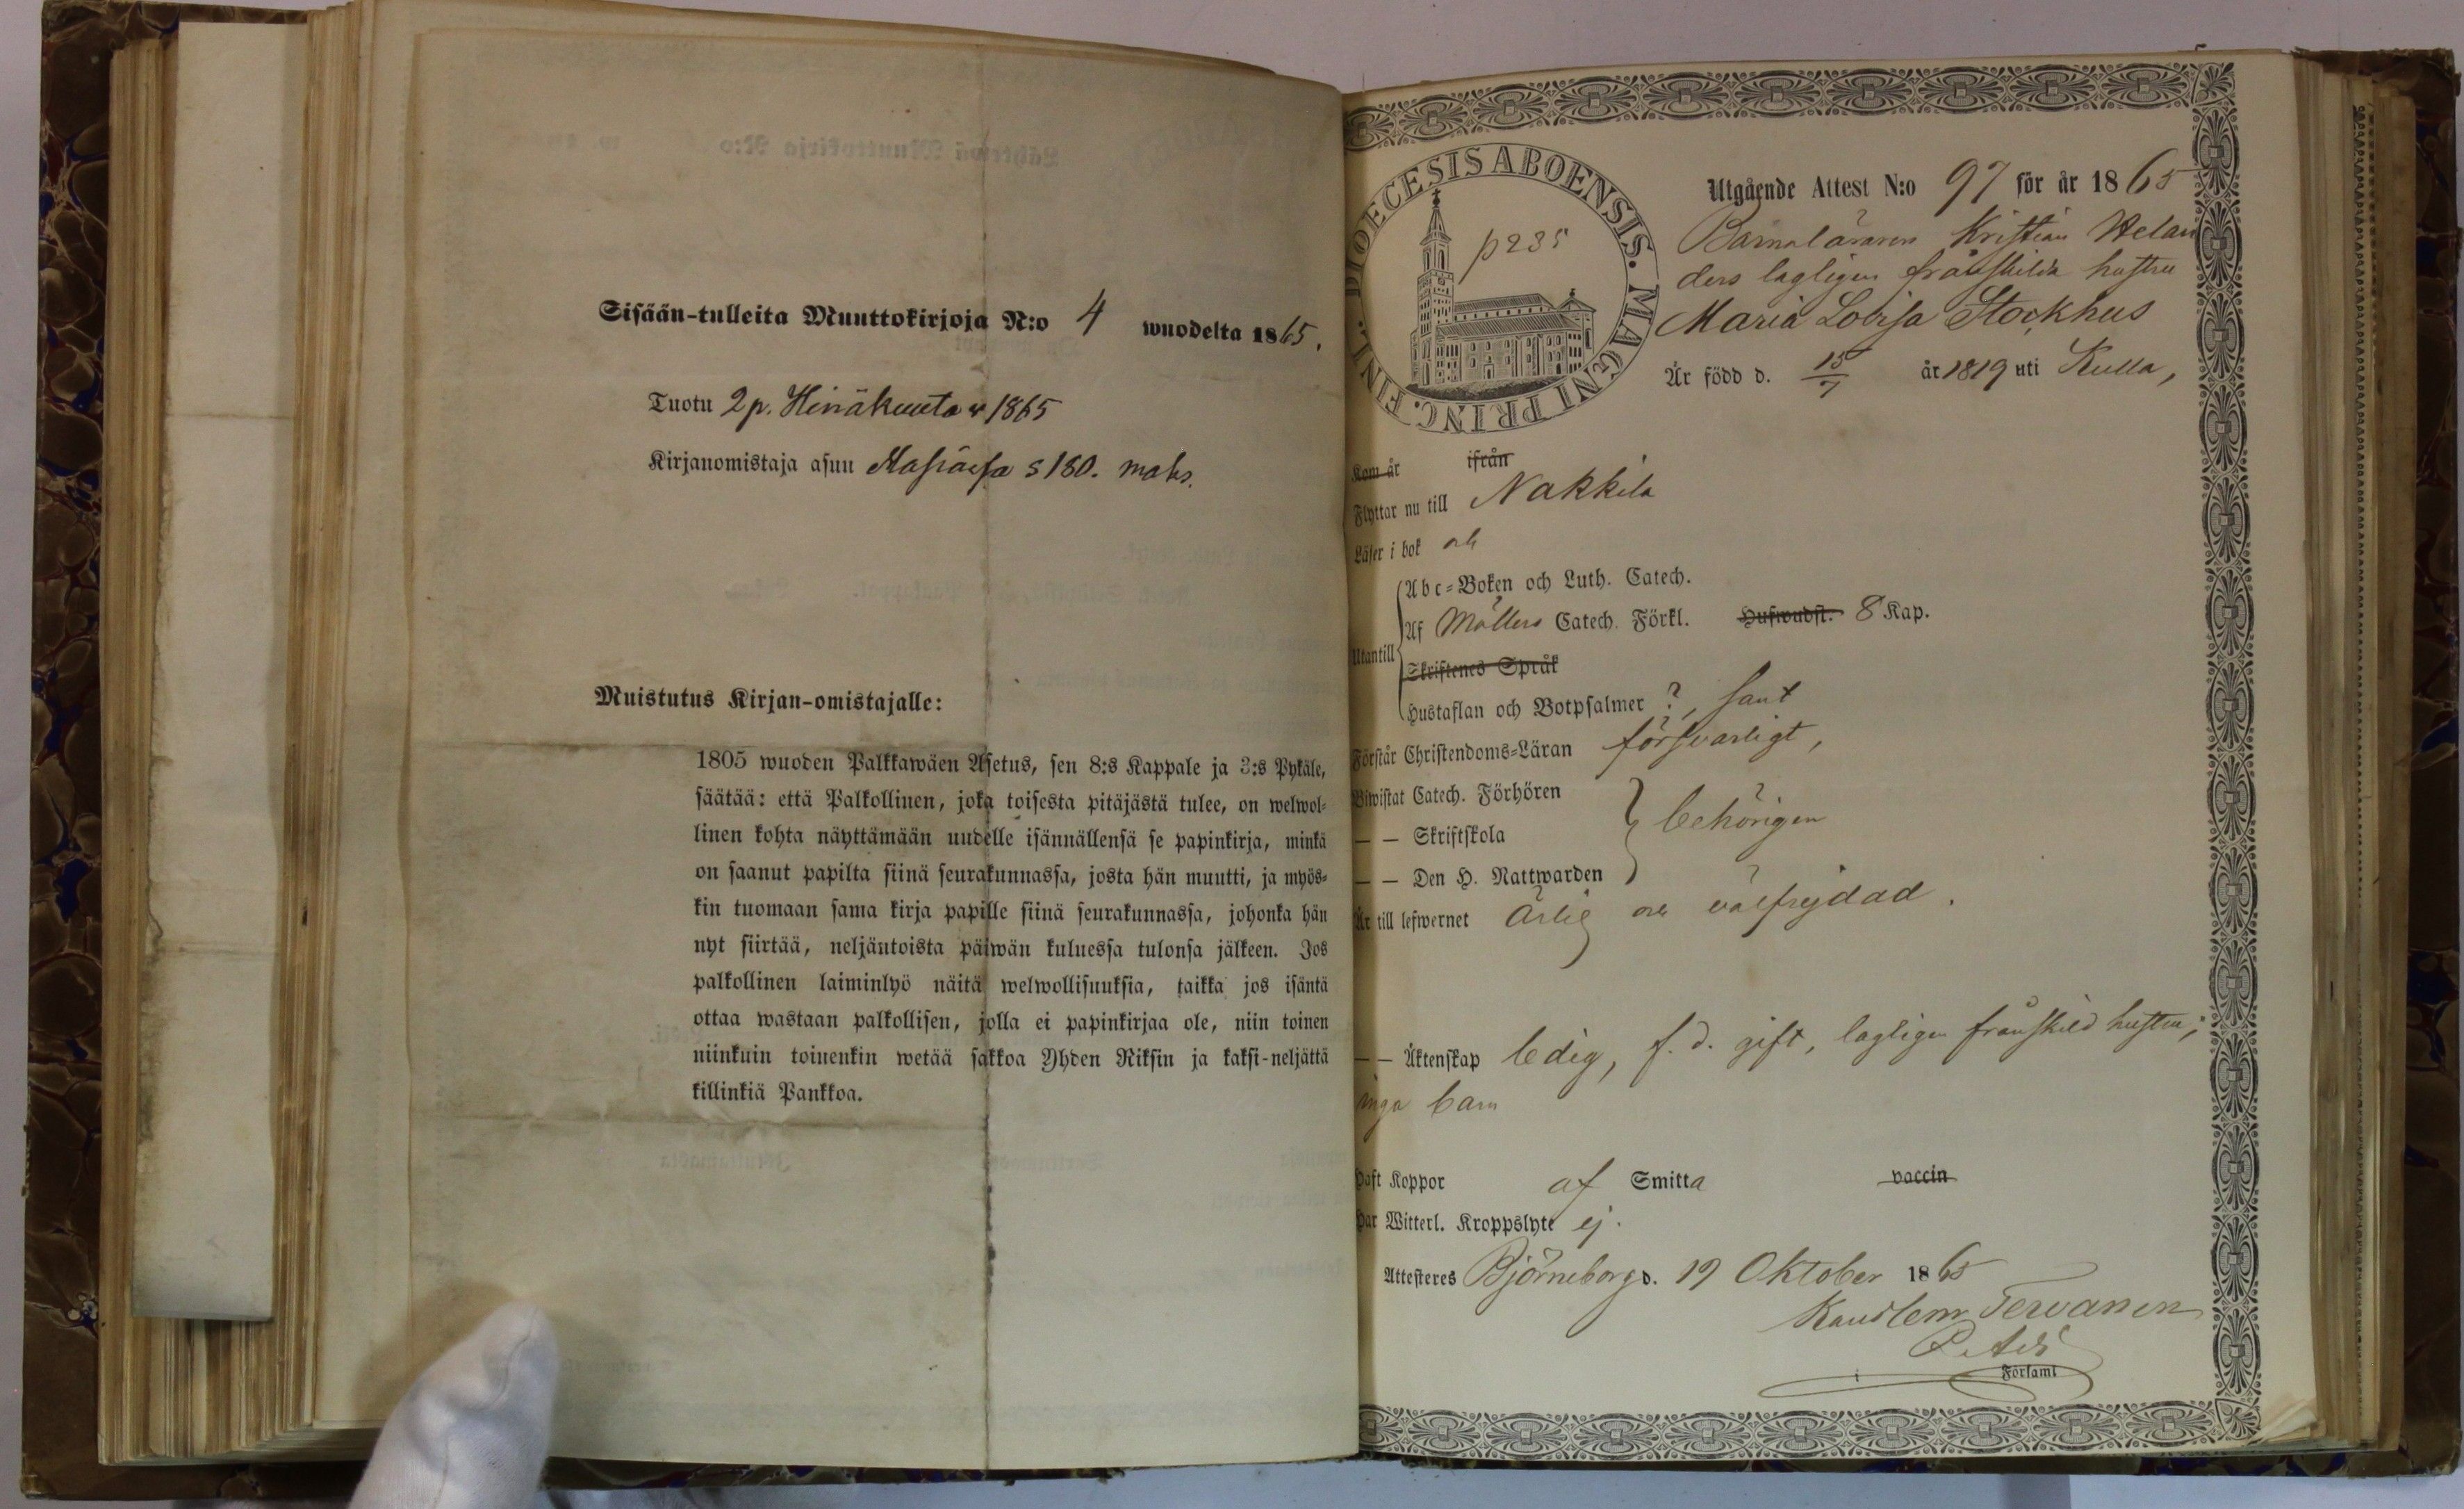 Sisään-tulleita Muuttokirjoja N:o 4 wuodelta 1865.
Tuotu 2 p. Heinäkuuta w 1865
Kirjanomistaja asuu s 180. maks.
Muistutus Kirjan-omistajalle:
1805 wuoden Palkkawäen Asetus, sen 8:s Kappale ja 3:s Pykäle,
säätää: että Palkollinen, joka toisesta pitäjästä tulee, on welwol-
linen kohta näyttämään uudelle isännällensä se papinkirja, minkä
on saanut papilta siinä seurakunnassa, josta hän muutti, ja myös-
kin tuomaan sama kirja papille siinä seurakunnassa, johonka hän
nyt siirtää, neljäntoista päiwän kuluessa tulonsa jälkeen. Jos
palkollinen laiminlyö näitä welwollisuuksia, taikka jos isäntä
ottaa wastaan palkollisen, jolla ei papinkirjaa ole, niin toinen
niinkuin toinenkin wetää sakkoa Yhden Riksin ja kaksi-neljättä
killinkiä Pankkoa.
DIOECESIS ABOENSIS. MAGNI PRINC. FINL.
p 235
Utgående Attest N:o 97 för år 1865
Barnaläraren Kristian Helan
ders lagligen frånskilda hustru
Maria Lovisa Stockhus
Är född d. 15/7 år 1819 uti Kulla,
Kom år ifrån
Flyttar nu till Nakkila
Läser i bok och
Utantill
Abc-Boken och Luth. Catech.
Af Möllers Catech. Förkl. Hufwudst. 8 Kap.
Skriftenes Språk
Hustaflan och Botpsalmer ?, samt
Förstår Christendoms-Läran försvarligt,
Biwistat Catech. Förhören
— — Skriftskola behörigen
— — Den H. Nattwarden
Är till lefwernet Ärlig och välfrejdad.
— — Äktenskap ledig, f. d. gift, lagligen frånskild hustru;
inga barn
Haft Koppor af Smitta vaccin
Har Witterl. Kroppslyte ej.
Attesteres Björneborg d. 19 Oktober 1865
Tervanen
i Församl